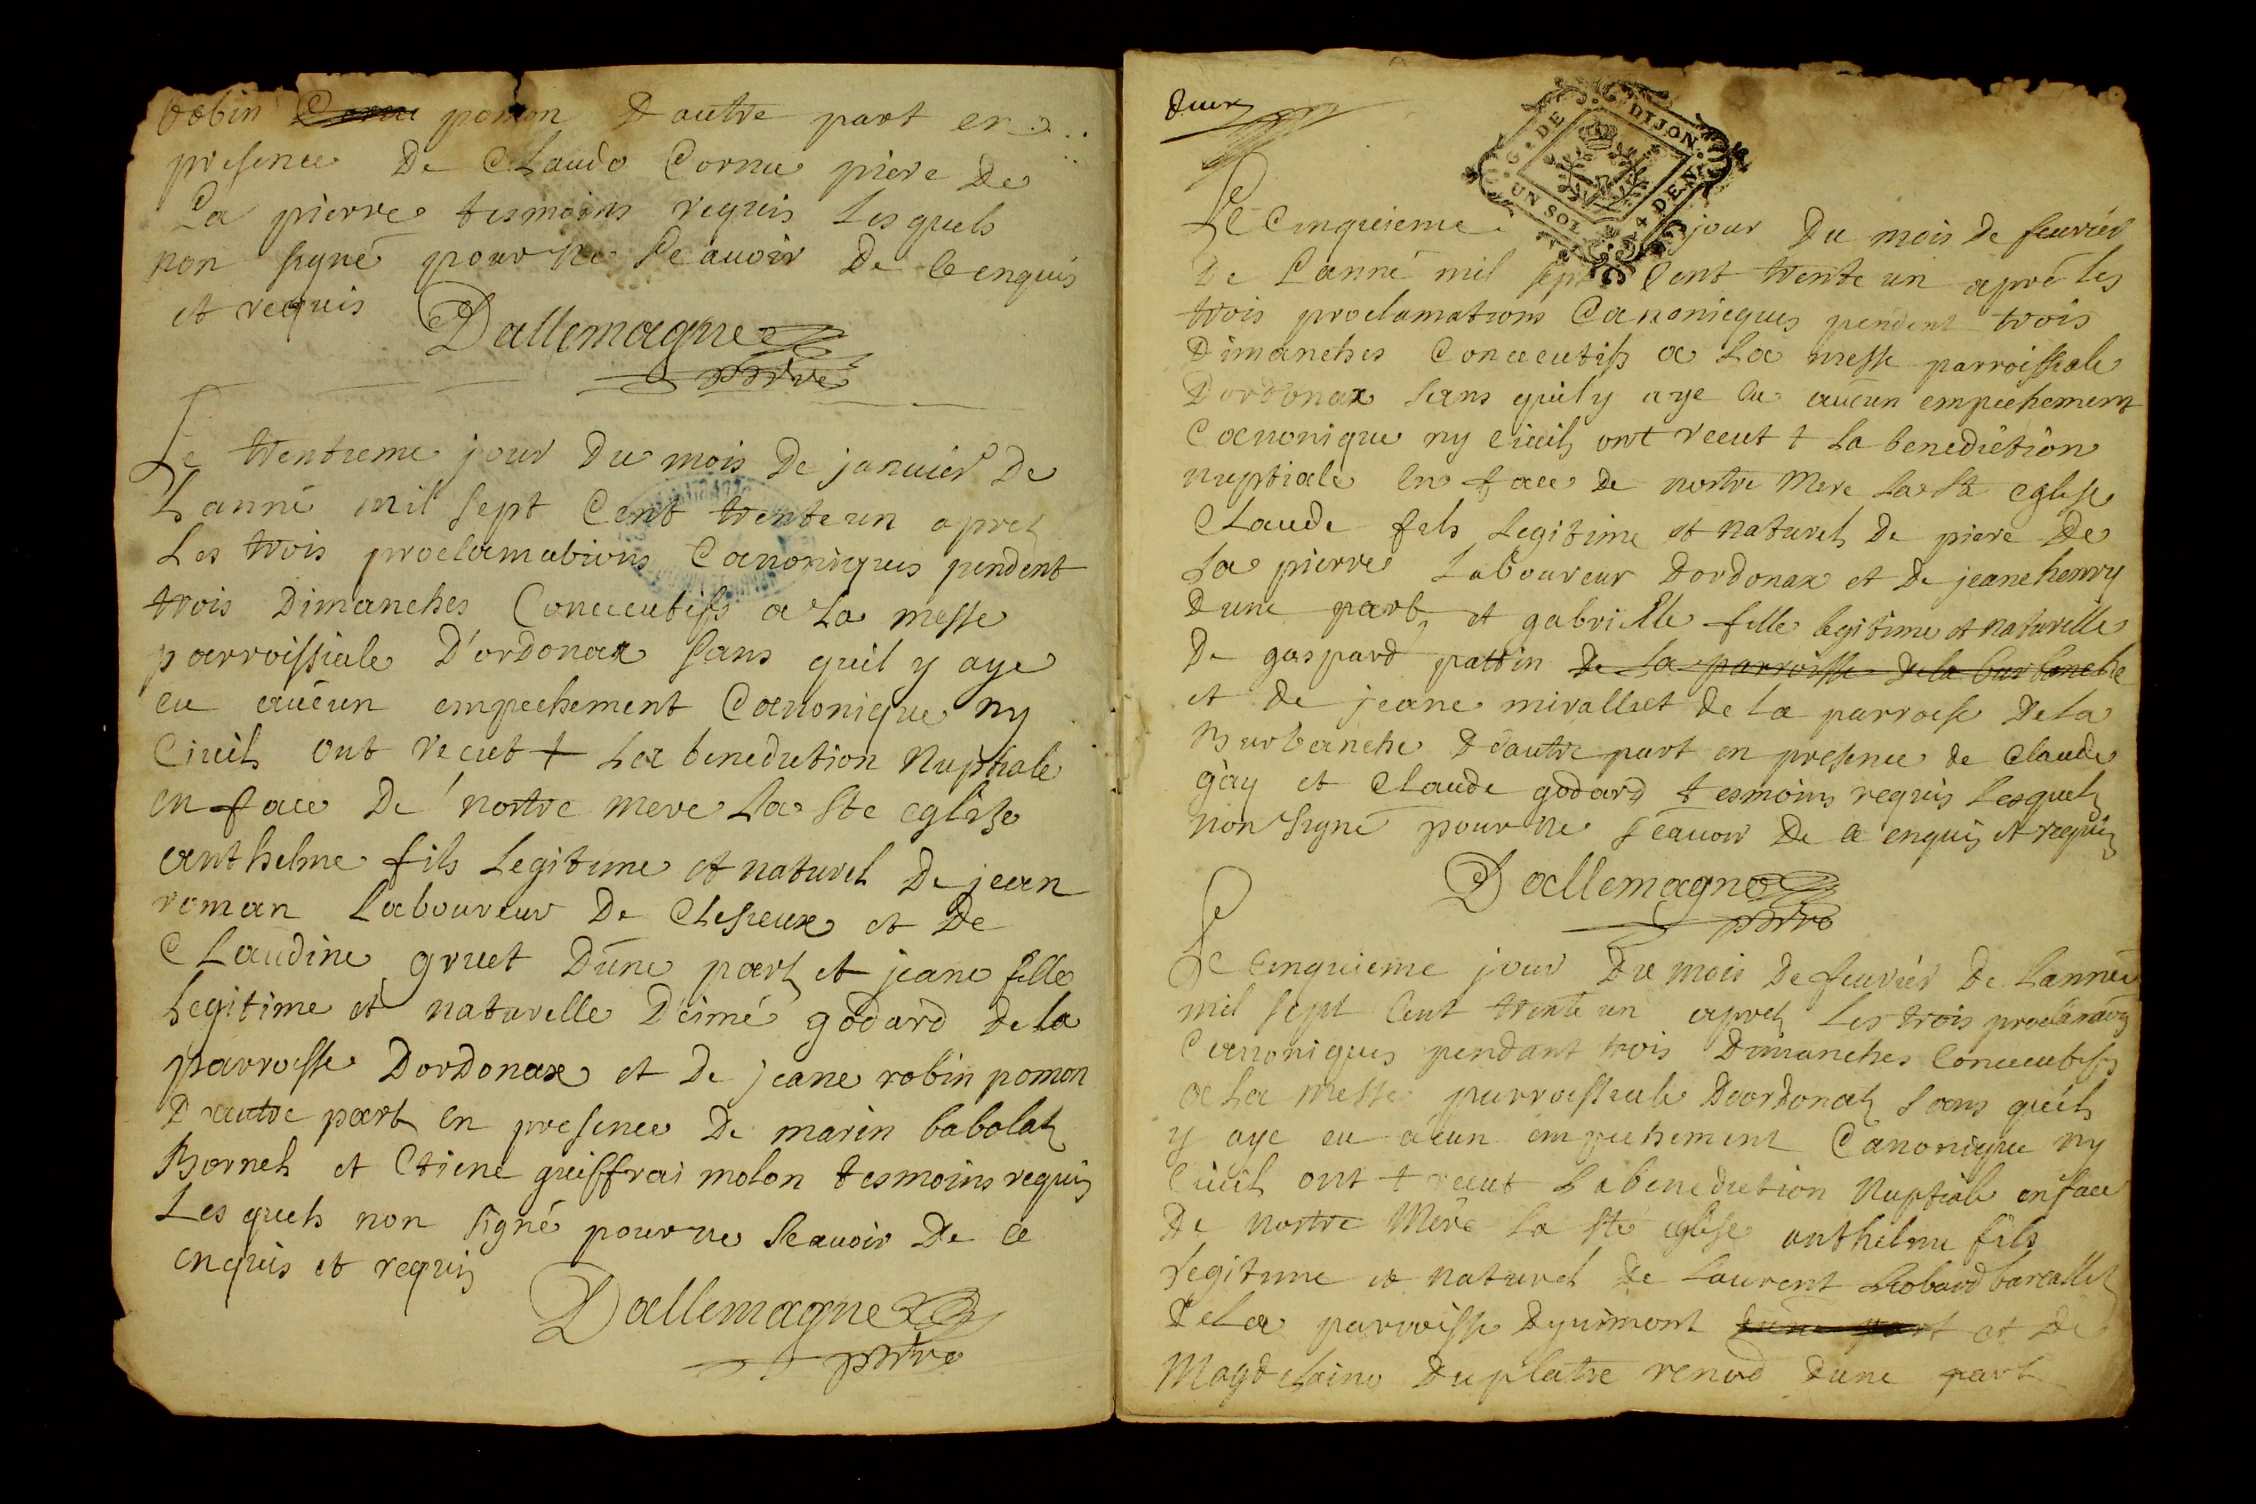 robin pomon D autre part en
presence De Claude Cornu piere De
La pierre tesmoins requis Lesquels
non signé pour ne Scauoir De Ce enquis
et requis
Dallemagne
pbtre
Le trentieme jour Du mois De januiér De
Lanné mil sept Cent trente un apret
Les trois proclamations Canoniques pendent
trois Dimanches Concecutifs a La messe
parroissiale D'ordonax sans quil y aye
eu aucun empechement Canonique ny
Ciuil ont recut + La benediction Nuptiale
en face De nostre mere La Ste eglise
anthelme fils Legitime et naturel De jean
roman Laboureur De et De
Claudine gruet Dune part et jeane fille
Legitime et naturelle Deimé godard De la
parroisse Dordonax et De jeane robin pomon
D autre part en presence De marin babolat
Bornel et Etiene guiffrai molon tesmoins requis
Les quels non signé pour ne Scauoir De Ce
enquis et requis
Dallemagne
pbtre
deux
G. DE DIJON.
UN SOL 4 DEN.
Le Cinquieme jour Du mois De feuriér
De Lanné mil sept Cent trente un apré les
trois proclamations Canoniques pendent trois
Dimanches Concecutifs a La messe parroissiale
Dordonax sans quil y aye eu aucun empechement
Canonique ny Ciuil ont recut + La benediction
nuptiale En face De nostre Mere La Ste eglise
Claude fils Legitime et naturel De piere De
La pierre Laboureur Dordonax et De jeane henry
Dune part et gabrielle fille legitime et naturelle
De gaspard pattin de la parroisse de la burbanche
et de jeane mirallet de la parroise De la
Burbanche D autre part en presence de Claude
gay et Claude godard tesmoins requis Lesquels
non signé pour ne scauoir De Ce enquis et requis
Dallemagne
pbtre
Le Cinquieme jour Du mois De feuriér De Lanné
mil sept Cent trente un apret Les trois proclamaõns
Canoniques pendant trois Dimanches Concecutifs
a La messe parroissiale Dordonat sans quil
y aye eu acun empechement Canonique ny
Ciuil ont + recut La benediction Nuptiale en face
De nostre Mere La Ste eglise anthelme fils
Legitime et naturel De Laurent
De La parroisse Dyzimont dune part et De
Magdelaine Duplatre renod Dune part